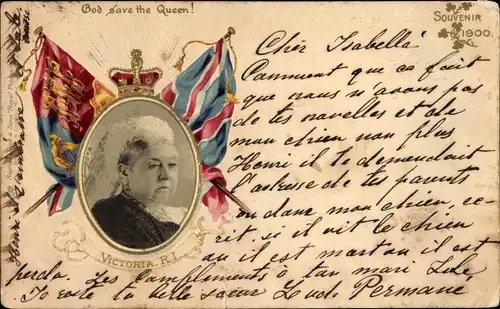 God save the Queen!
SOUVENIR
1900.
Cher Isabella
Comment que ca fait
que nous n'avons pas
de tes novelles et de
mon chien non plus
Henri il te demendait
l'adresse de tes parents
ou donc mon chien, ec-
rit, si il vit le chien
ou il est mort ou il est
perdu, Les Compliments à ton mari
Je reste ta belle soeur Permane
VICTORIA. R.I.